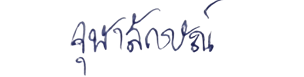 จุฬาลักษณ์